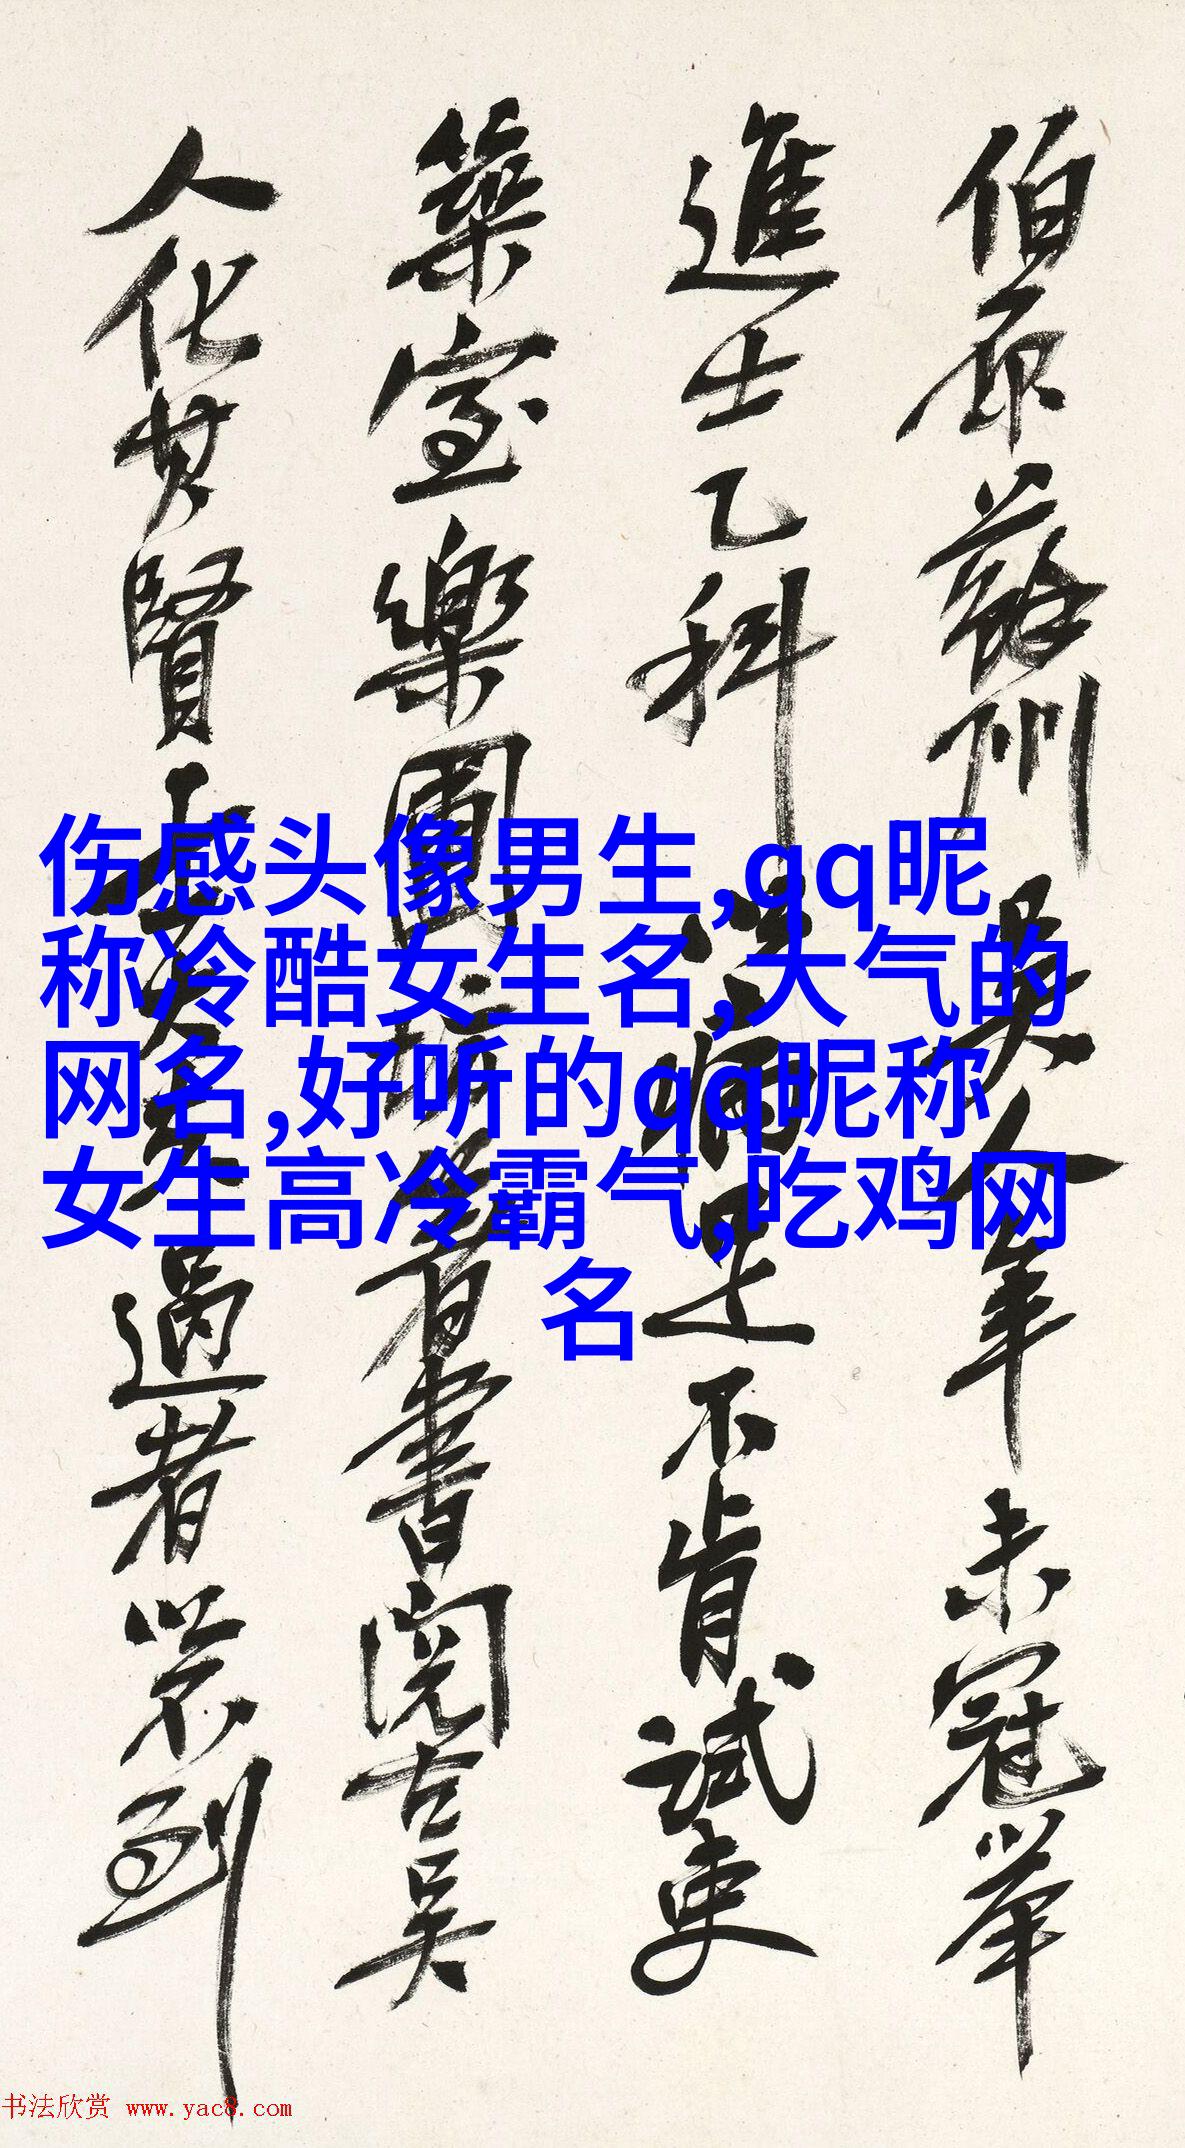 伯原蘇州吳人年未冠舉
進士乙科以病足不肯試吏
築室樂圃坊著書閱古吳
人化其賢士大夫過者以不到
伤感头像男生,qq昵
称冷酷女生名,大气的
网名,好听的qq昵称
女生高冷霸气,吃鸡网
名
书法欣赏 www.yac8.com